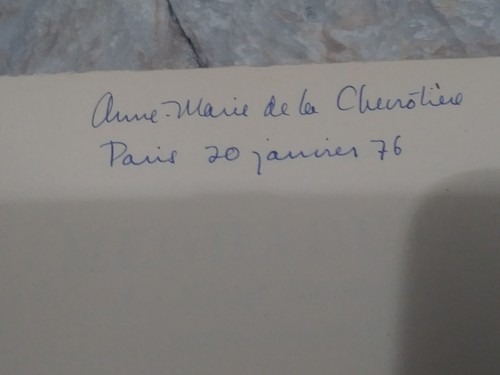 Anne-Marie de la Chevrotière
Paris 20 janvier 76